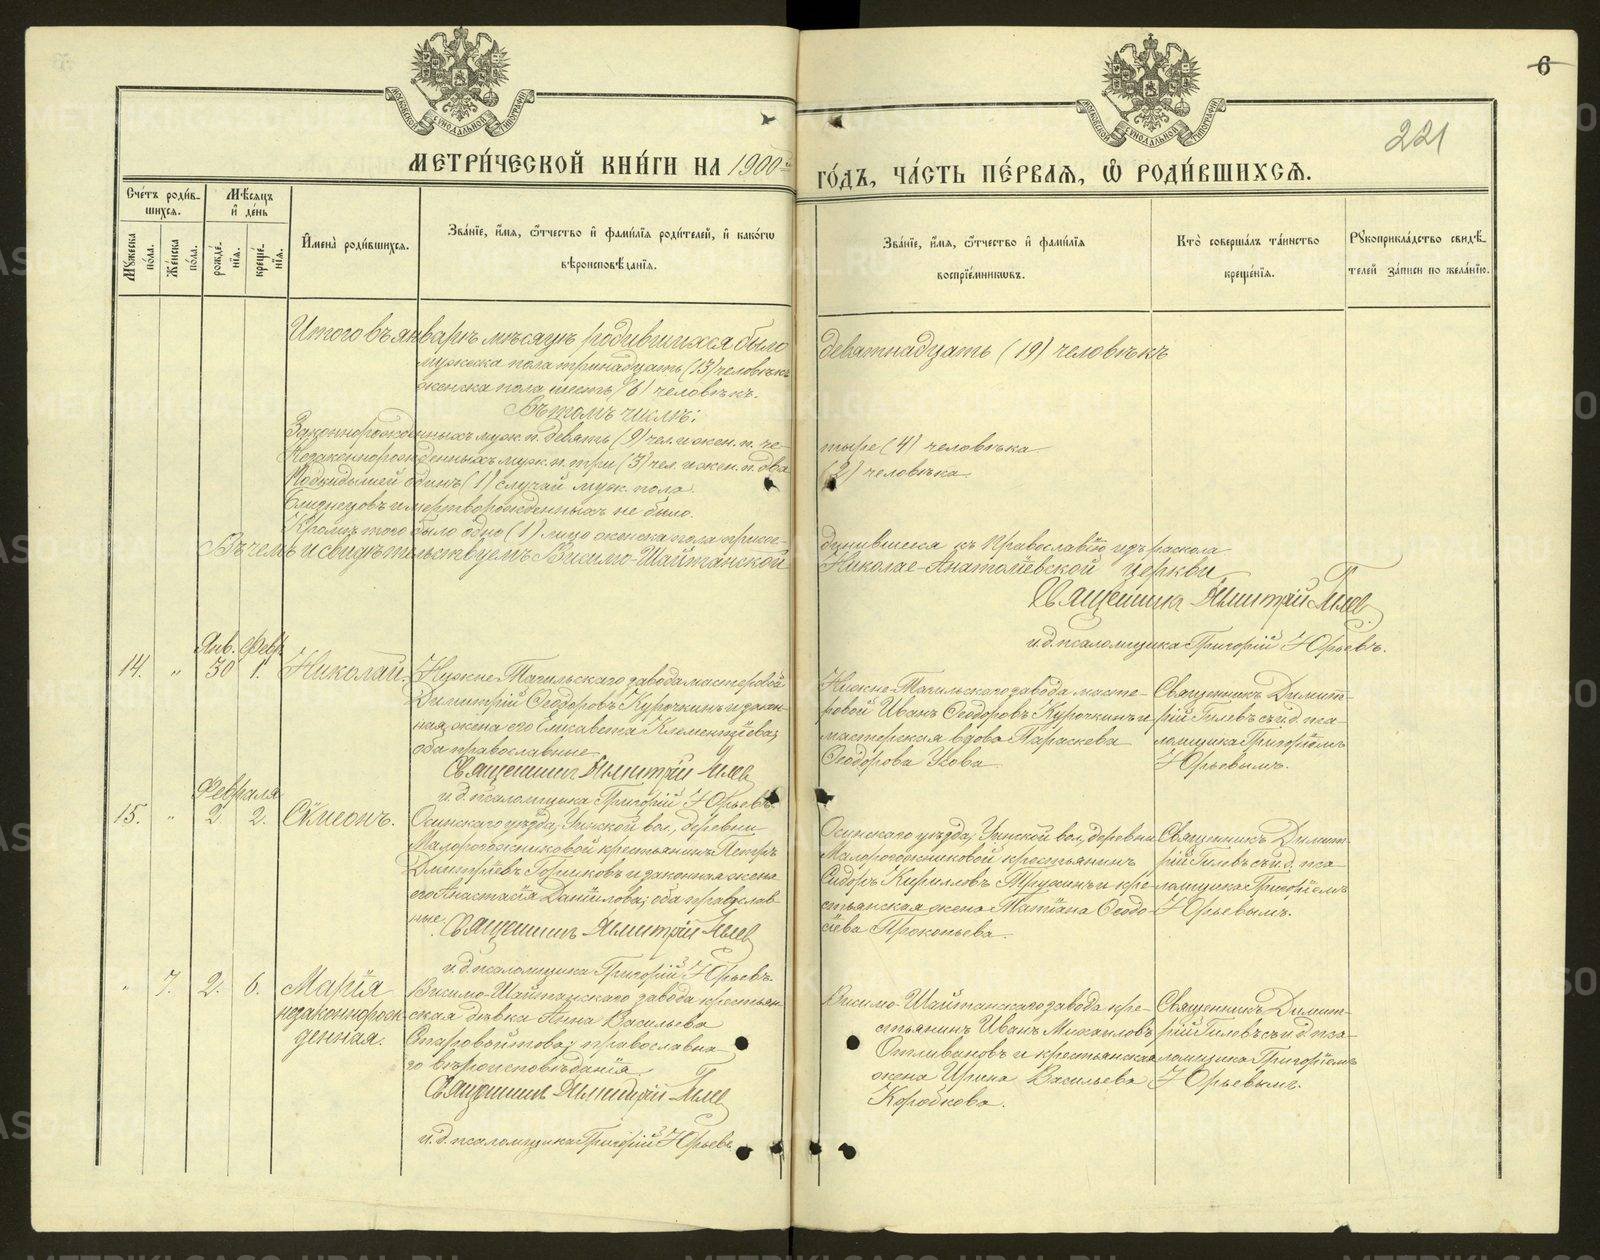 МЕТРИ́ЧЕСКОЙ КНИ́ГИ НА 1900
ГО́ДЪ, ЧА́СТЬ ПЕ́РВАЯ, Ѿ РОДИ́ВШИХСЯ.
6
221
Сче́тъ роди́в-
шихся.
Мѣ́сяцъ
и҆ де́нь
Мꙋжеска по́ла.
Же́нска по́ла.
рожде́-
нїѧ.
креще́-
нїѧ.
И҆мена̀ роди́вшихсѧ.
Зва́нїе, и҆́мѧ, ѻ҆́тчество и҆ фамі́лїѧ роди́телей, и҆ како́гѡ
вѣроисповѣ́данїѧ.
Зва́нїе, и҆́мѧ, ѻ҆́тчество и҆ фамі́лїѧ
воспрїе́мникѡвъ.
Кто̀ соверша́лъ та́инство
креще́нїѧ.
Рꙋкоприкла́дство свидѣ́-
телей за́писи по жела́нїю.
Итого въ январѣ мѣсяцѣ родившихся было
девятнадцать (19) человѣкъ
мужеска пола тринадцать (13) человѣкъ
женска пола шесть (6) человѣкъ.
Въ томъ числѣ:
Законнорожденныхъ муж. п. девять (9) чел. и жен. п. че-
тыре (4) человѣка
Незаконнорожденныхъ муж. п. три (3) чел. и жен. п. два
(2) человѣка
Подкидышей одинъ (1) случай муж. пола.
Близнецовъ и мертворожденныхъ не было.
Кромѣ того было одно (1) лицо женска пола присое-
динившееся къ Православію изъ раскола
Въ чемъ и свидѣтельствуемъ Висимо-Шайтанской
Николае-Анатоліевской церкви
Священникъ Димитрій Гилев
и. д. псаломщика Григорій Юрьевъ.
Янв. Февр.
14. " 30 1. Николай.
Нижне-Тагильскаго завода мастеровой
Димитрій Ѳеодоровъ Курочкинъ и закон-
ная жена его Елисавета Климентіева;
оба православные
Священник Димитрій Гилев
и. д. псаломщика Григорій Юрьевъ
Нижне-Тагильскаго завода масте-
ровой Иванъ Ѳеодоровъ Курочкинъ и
мастерская вдова Параскева
Ѳеодорова Ukова
Священникъ Димит-
рій Гилевъ съ и. д. пса-
ломщика Григоріемъ
Юрьевымъ.
Февраля
15. " 2 2. Сѵмеонъ.
Осинскаго уѣзда, Уинской вол., деревни
Малорогожниковой крестьянинъ Петръ
Димитріевъ Горшковъ и законная жена
его Анастасія Даніилова; оба православ-
ные. Священникъ Димитрій Гилев
и. д. псаломщика Григорій Юрьевъ.
Осинскаго уѣзда, Уинской вол., деревни
Малорогожниковой крестьянинъ
Сидоръ Кирилловъ Трухинъ и кре-
стьянская жена Татіана Ѳеодо-
сіева Прокопьева.
Священникъ Димит-
рій Гилевъ съ и. д. пса-
ломщика Григоріемъ
Юрьевымъ.
" 7. 2. 6. Марія
незаконнорож-
денная.
Висимо-Шайтанскаго завода крестьян-
ская дѣвка Анна Васильева
Старовойтова; православна-
го вѣроисповѣданія.
Священникъ Димитрій Гилев
и. д. псаломщика Григорій Юрьевъ.
Висимо-Шайтанскаго завода кре-
стьянинъ Иванъ Михаиловъ
Отливановъ и крестьянская
жена Ирина Васильева
Коробкова.
Священникъ Димит-
рій Гилевъ съ и. д. пса-
ломщика Григоріемъ
Юрьевымъ.